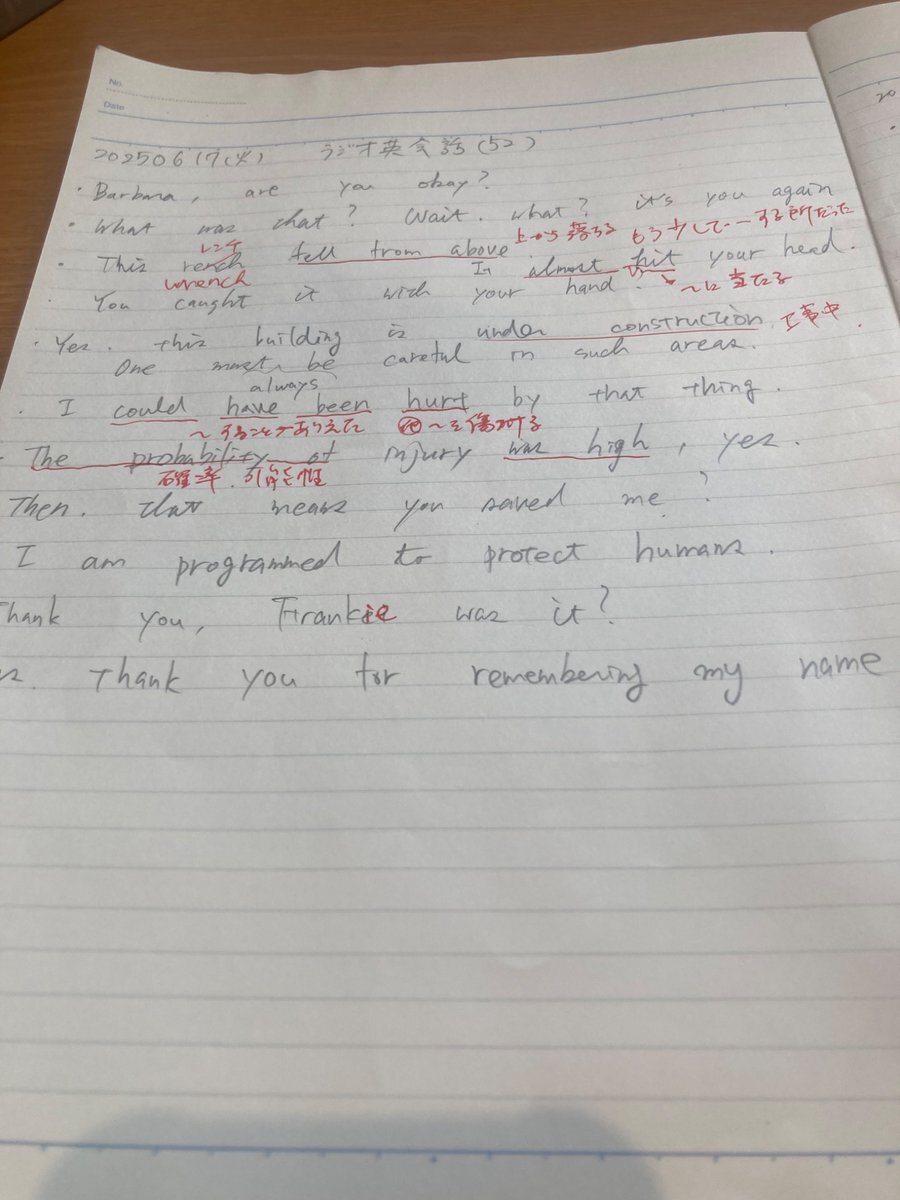 No.
Date
20250617(火) ラジオ英会話(52)
・Barbara, are you okay?
・What was that? Wait. what? it's you again
上から落ちる もう少しで…する所だった
レンチ
・This rench fell from above. It almost hit your head.
wrench ～に当たる
You caught it with your hand.
・Yes. this building is under construction. 工事中.
One must be careful in such areas.
always
・I could have been hurt by that thing.
～することがありえた ～を傷つける
・The probability of injury was high, yes.
確率.可能性
Then. that means you saved me?
I am programmed to protect humans.
Thank you, Frankie was it?
Thank you for remembering my name
20